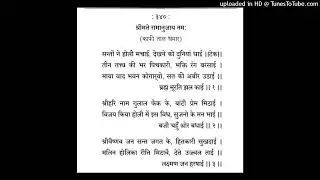 uploaded in HD @ TunesToTube.com
: ३४० :
श्रीमते रामानुजाय नमः
(काफी ताल धमार)
सन्तों में होली मचाई, देखने को दुनियां धाई ।टेक।
तीन तत्त्व की भर पिचकारी, भक्ति रंग बरसाई
माया वाद भवन कोगारयो, सत की अबीर उड़ाई
ब्रह्म मूरति झल काई ।। १ ।।
श्रीहरि नाम गुलाल फेंक के, बांटी प्रेम मिठाई
विजय किया होली में इस विध, सुजनो के मन भाई
बजी चहुँ ओर बधाई ।। २ ।।
श्रीवैष्णव जन सन्त जगत के, हितकारी सुखदाई
मलिन होलिका रीति मिटावें, देते उज्वल लाई
लक्ष्मण जन हरषाई ।। ३ ।।